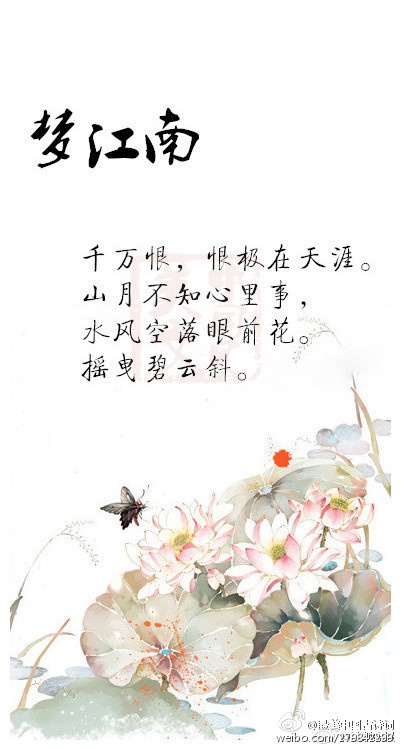 梦江南
千万恨，恨极在天涯。
山月不知心里事，
水风空落眼前花。
摇曳碧云斜。